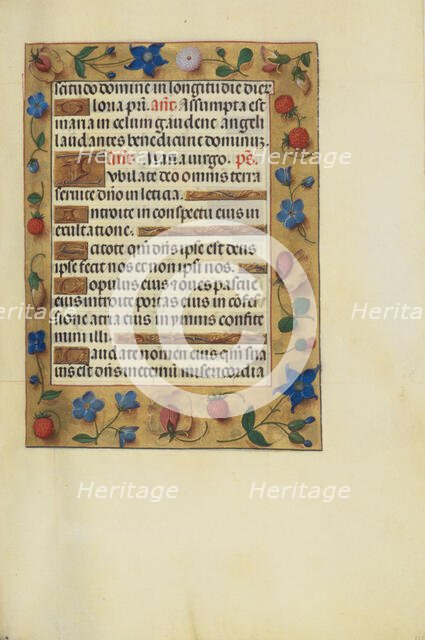 sctitudo domine in longitudie dier
Gloria pri. Añt. Assumpta est
maria in celum gaudent angeli
laudantes benedicunt dominum.
Maria virgo. ps.
Iubilate deo omnis terra
servite dño in leticia.
Introite in conspectu eius in
exultatione.
Scitote qm̃ dñs ipse est deus
ipse fecit nos et non ipsi nos.
Populus eius et oves pascue
eius introite portas eius in cõfes
sione atria eius in ymnis confite
mini illi.
Laudate nomen eius qm̃ sua
vis est dñs in eternũ misericordia
Heritage Heritage Heritage
Heritage Heritage